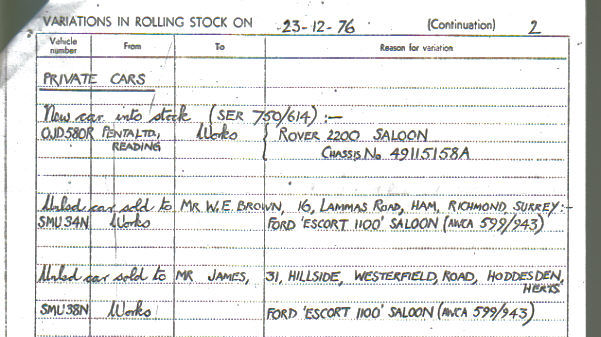 VARIATIONS IN ROLLING STOCK ON 23-12-76 (Continuation) 2
Vehicle number From To Reason for variation
PRIVATE CARS
New car into stock (SER 750/614) :-
OJD580R PENTALTD, READING Works { ROVER 2200 SALOON
CHASSIS No 49115158A
car sold to MR W.E. BROWN, 16, LAMMAS ROAD, HAM, RICHMOND SURREY:-
SMU34N Works FORD 'ESCORT 1100' SALOON (AWCA 599/943)
car sold to MR JAMES, 31, HILLSIDE, WESTERFIELD, ROAD, HODDESDEN, HERTS
SMU38N Works FORD 'ESCORT 1100' SALOON (AWCA 599/943)